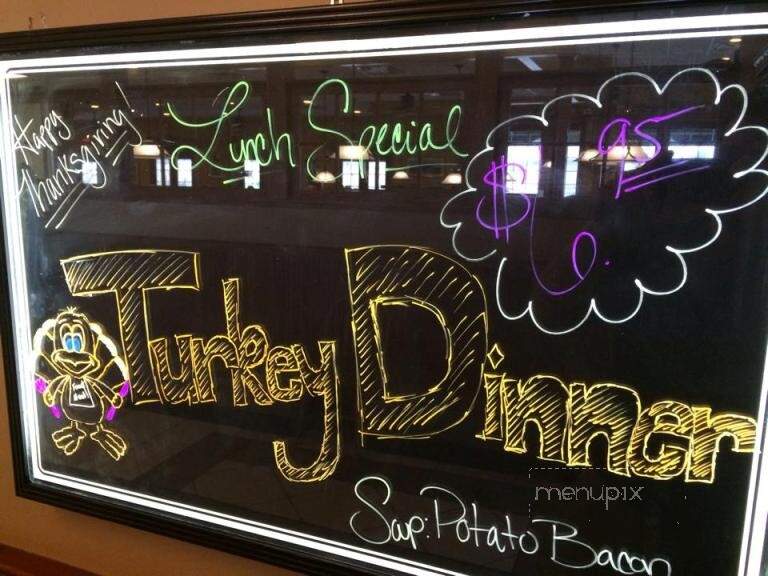 Happy
Thanksgiving!
Lunch Special
$6.95
Turkey Dinner
Soup: Potato Bacon
menupix